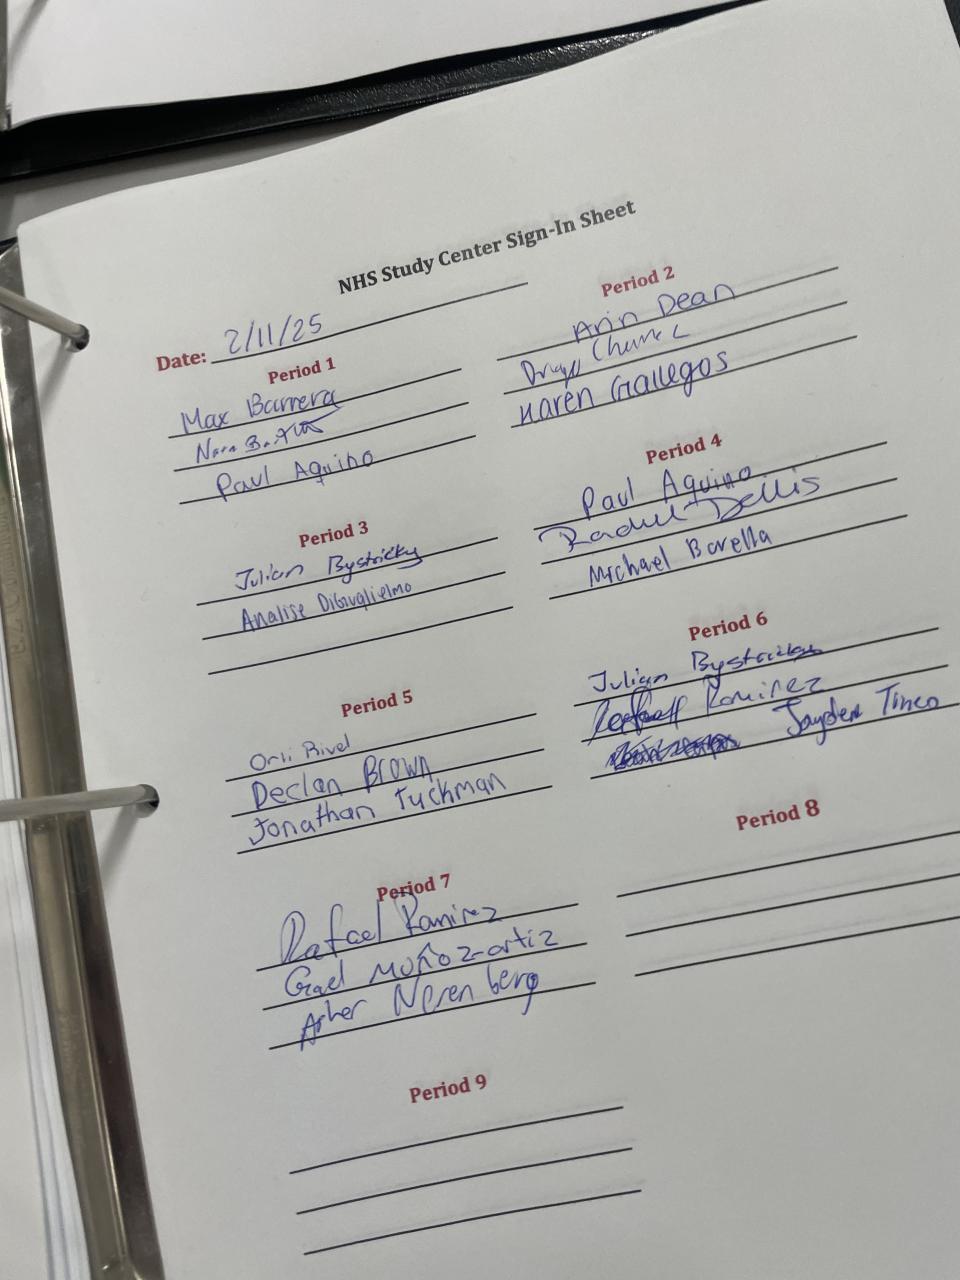 NHS Study Center Sign-In Sheet
Date: 2/11/25
Period 1
Max Barrera
Paul Aquino
Period 2
Arin Dean
Karen Gallegos
Period 3
Julian Bystricky
Analise DiGiuglielmo
Period 4
Paul Aquino
Rachel Dellis
Michael Barella
Period 5
Orli Rivel
Declan Brown
Jonathan Tuckman
Period 6
Julian Bystricky
Rafael Ramirez
Jayden Tineo
Period 7
Rafael Ramirez
Gael Muñoz-ortiz
Asher Nerenberg
Period 8
Period 9